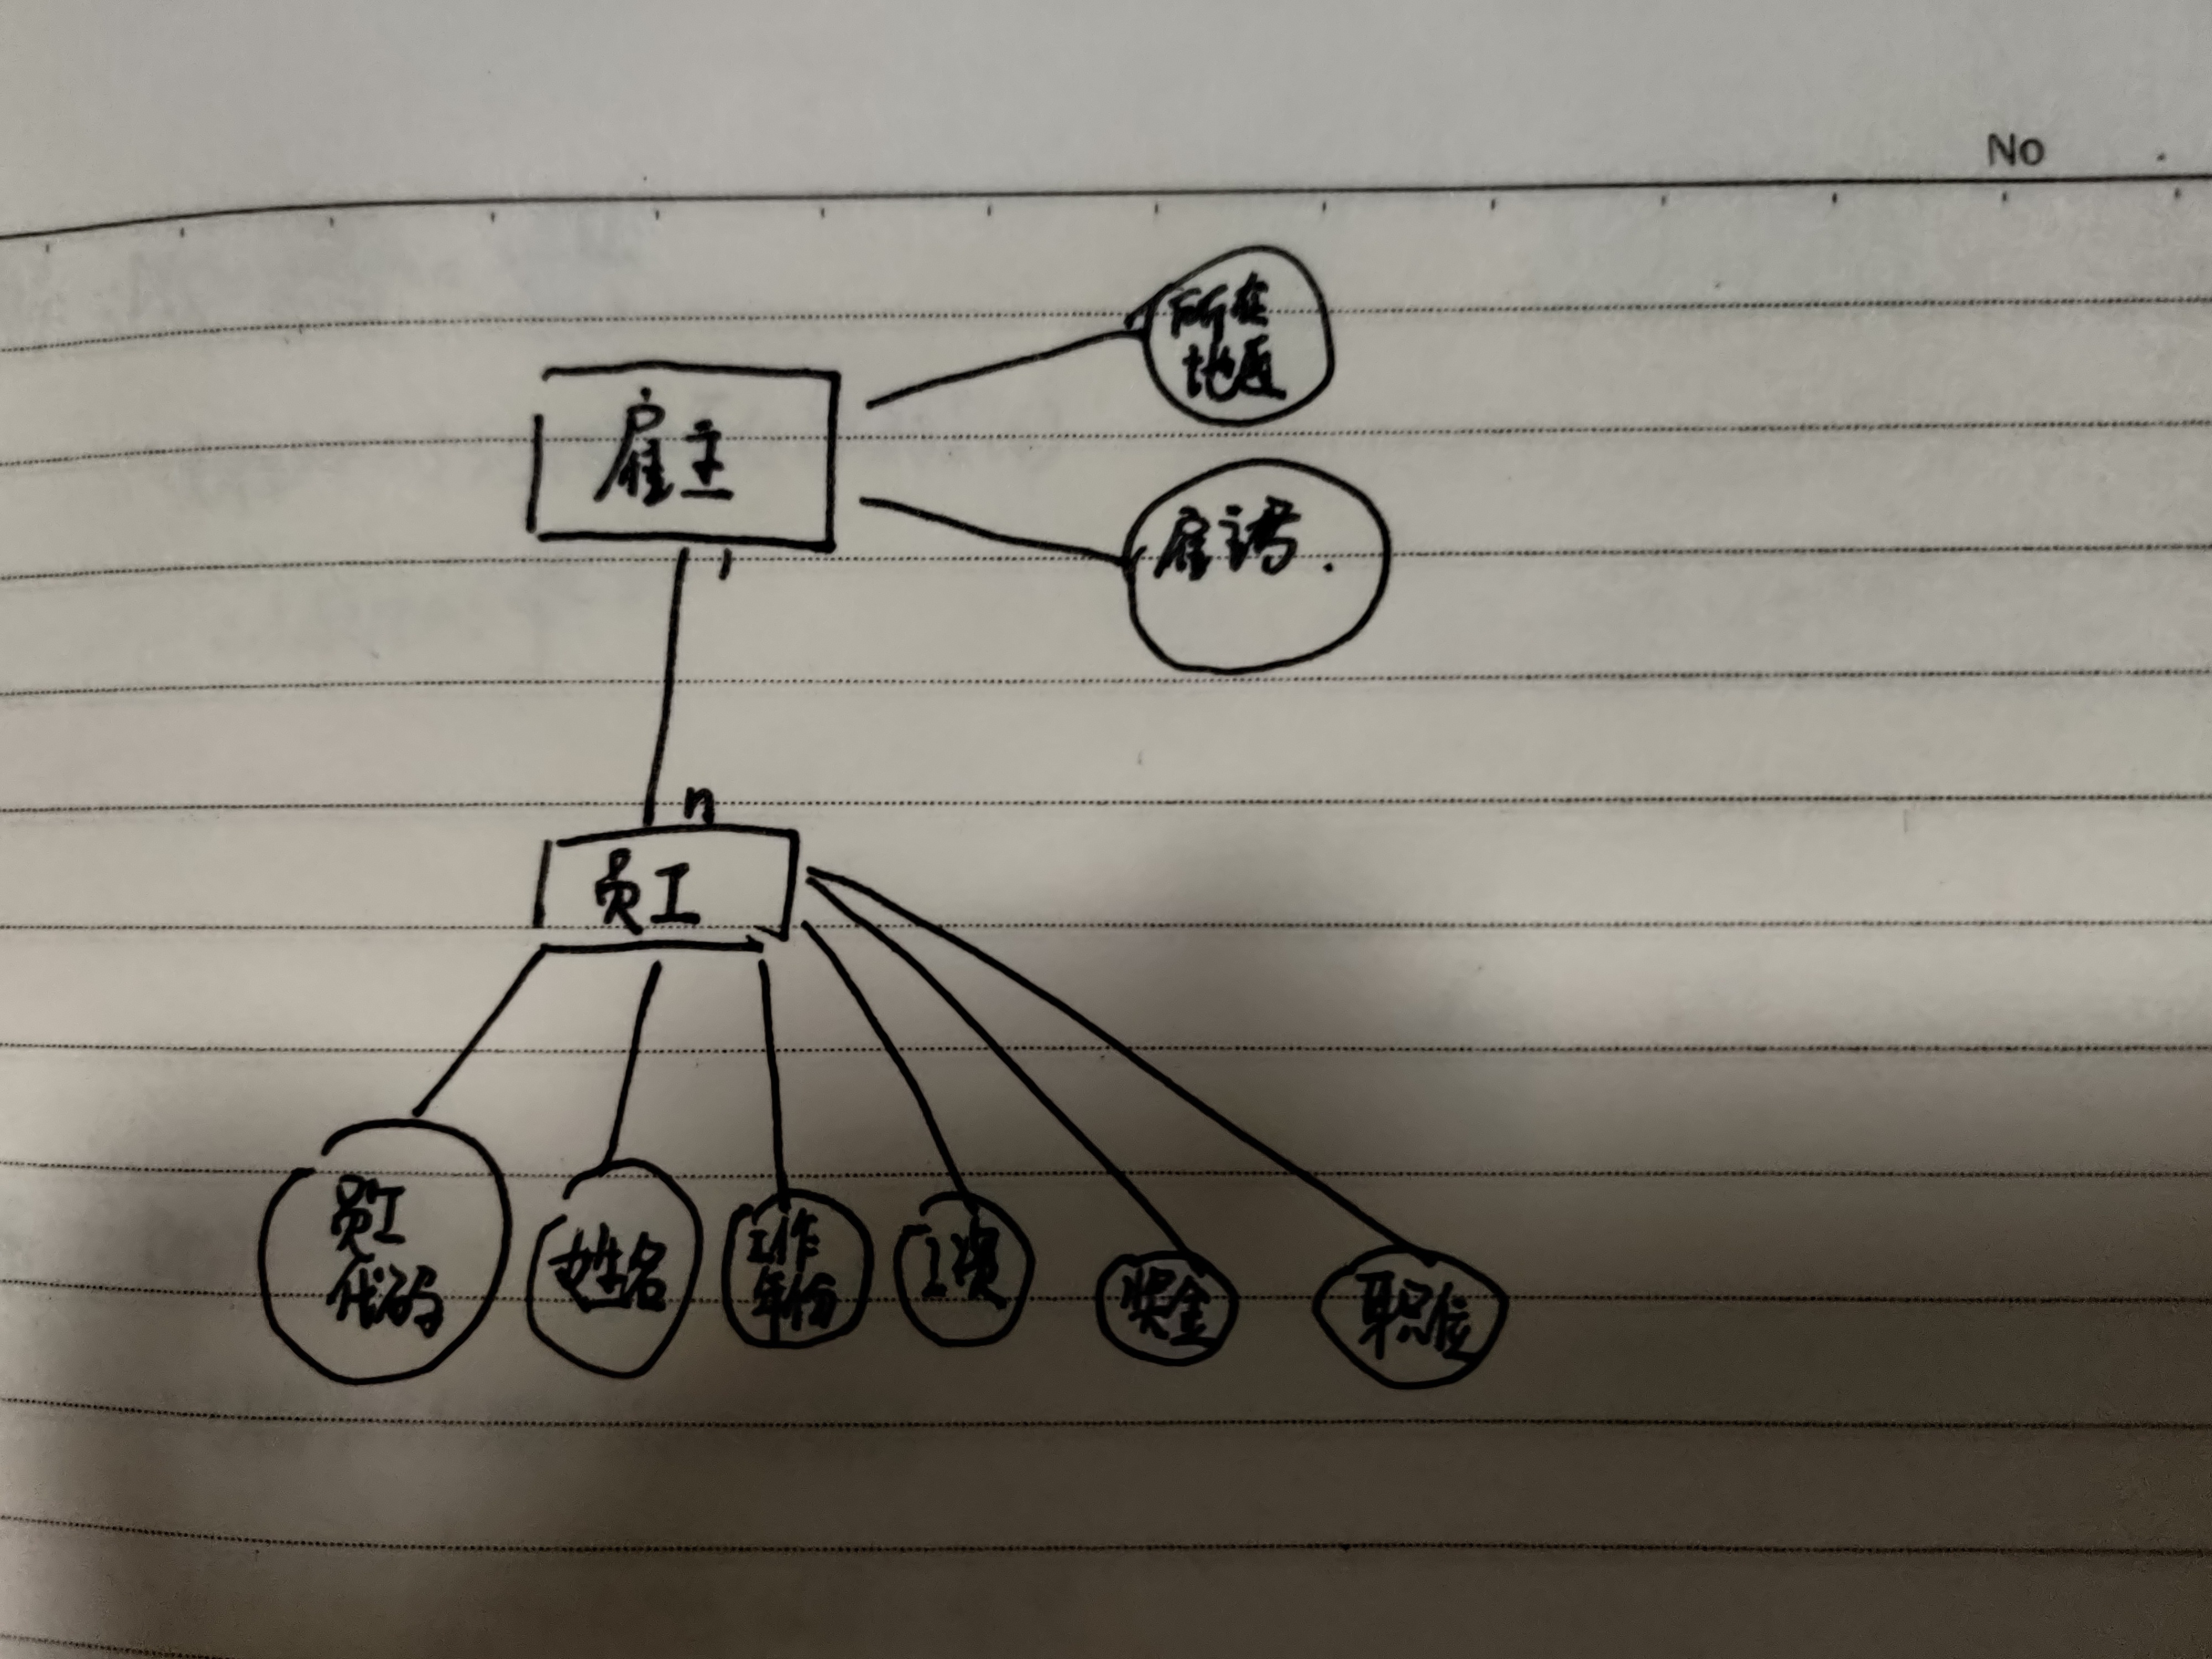 No
所在
地区
雇主
1
n
员工
员工
代码
姓名
工作
年份
工资
奖金
职位